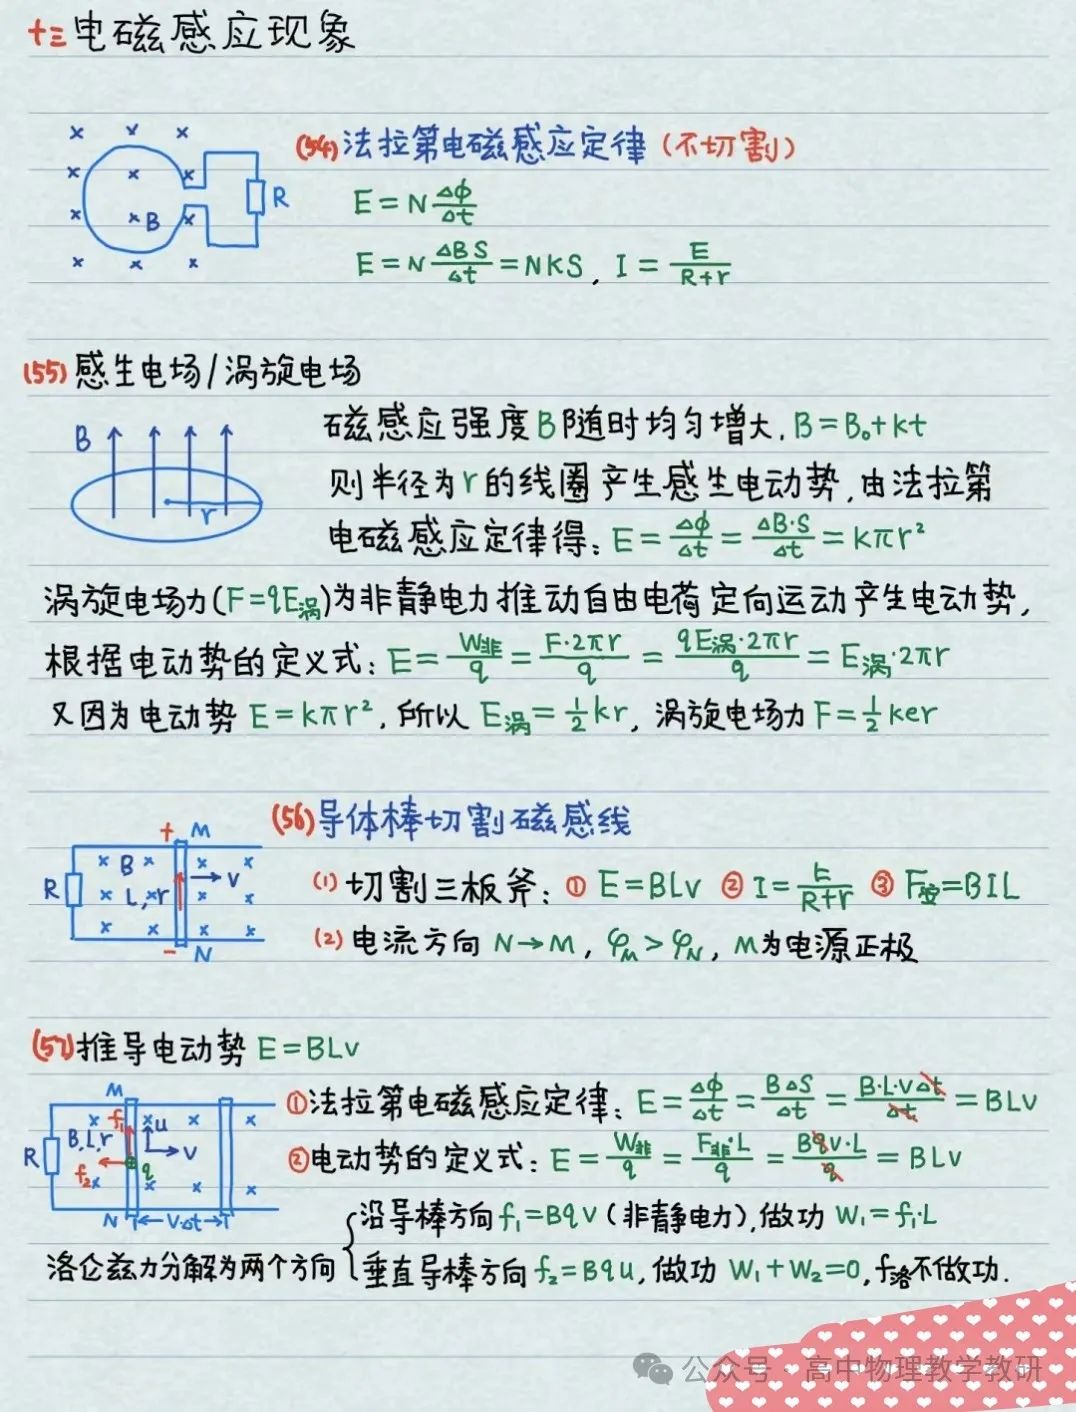 十三 电磁感应现象
(54) 法拉第电磁感应定律 (不切割)
× × ×
× × ×
× × B ×
× × ×
R
E = N Δϕ/Δt
E = N ΔBS/Δt = NKS, I = E/(R+r)
(55) 感生电场/涡旋电场
B
r
磁感应强度B随时均匀增大, B = B₀+kt
则半径为r的线圈产生感生电动势, 由法拉第
电磁感应定律得: E = Δϕ/Δt = ΔB·S/Δt = kπr²
涡旋电场力(F=qE涡)为非静电力推动自由电荷定向运动产生电动势,
根据电动势的定义式: E = W非/q = F·2πr/q = qE涡·2πr/q = E涡·2πr
又因为电动势 E = kπr², 所以 E涡 = ½kr, 涡旋电场力 F = ½ker
(56) 导体棒切割磁感线
+ M
× B × × ×
R × L, × r × ×
v
× × × ×
- N
(1) 切割三板斧: ① E = BLv ② I = E/(R+r) ③ F安 = BIL
(2) 电流方向 N→M, φM > φN, M为电源正极
(57) 推导电动势 E = BLv
M
× f₁ × u × ×
R B, L, r v
f₂ × q
× × ×
N ←V·Δt→
① 法拉第电磁感应定律: E = Δϕ/Δt = BΔS/Δt = B·L·vΔt/Δt = BLv
② 电动势的定义式: E = W非/q = F非·L/q = Bqv·L/q = BLv
沿导棒方向 f₁ = Bqv (非静电力), 做功 W₁ = f₁·L
洛仑兹力分解为两个方向
垂直导棒方向 f₂ = Bqu, 做功 W₁ + W₂ = 0, f洛不做功.
公众号 · 高中物理教学教研